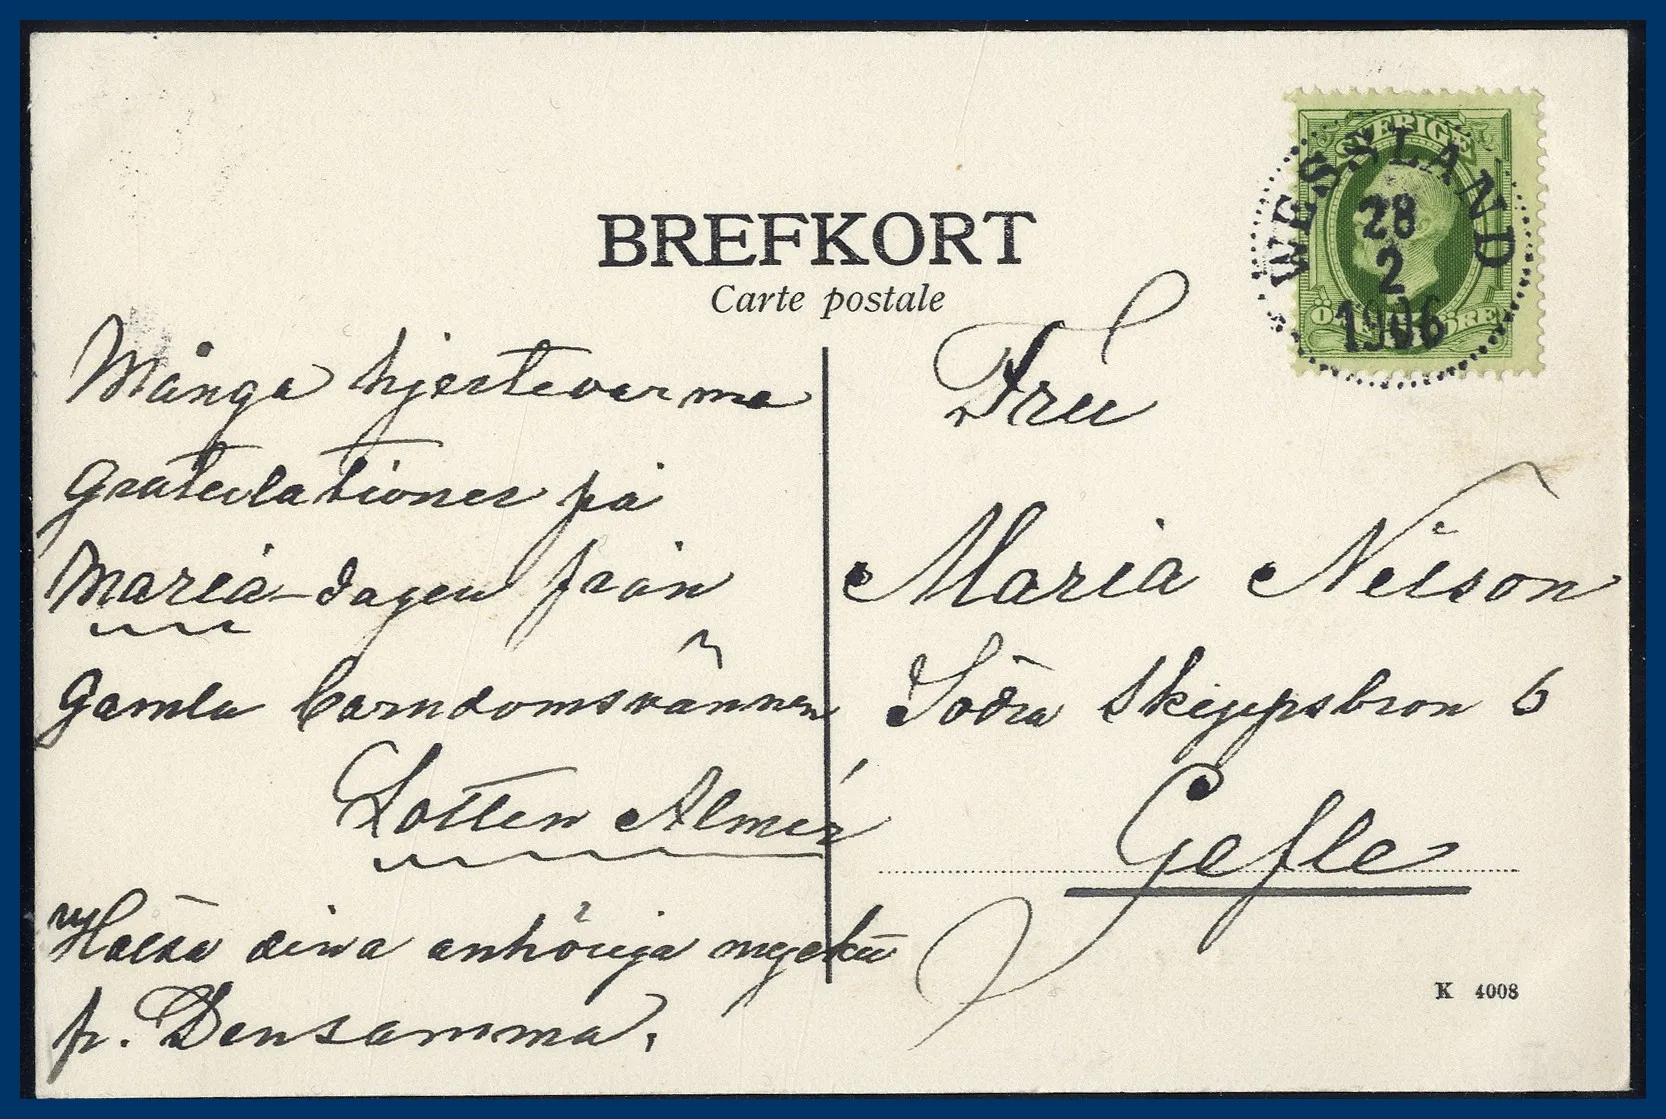 BREFKORT
Carte postale
SVERIGE
WESSLAND
28
2
1906
Många hjertevarma
Gratulationer på
Maria-dagen från
Gamla barndomsvännen
Lotten Almér
Hälsa dina anhöriga mycket
fr. Densamma.
Fru
Maria Nelson
Södra Skeppsbron 6
Gefle
K 4008